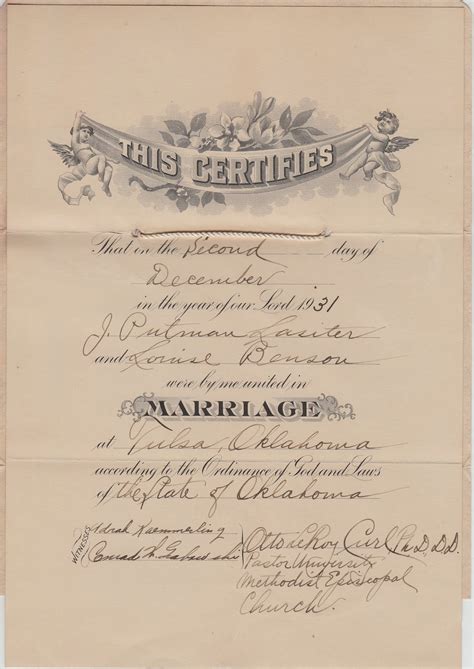 THIS CERTIFIES
That on the Second day of
December
in the year of our Lord 1931
J. Putman Lasiter
and Louise Benson
were by me united in
MARRIAGE
at Tulsa, Oklahoma
according to the Ordinance of God and Laws
of the State of Oklahoma
WITNESSES
Adrah Kaemmerling
Conrad
Otto LeRoy Curl Ph.D., D.D.
Pastor University
Methodist Episcopal
Church.